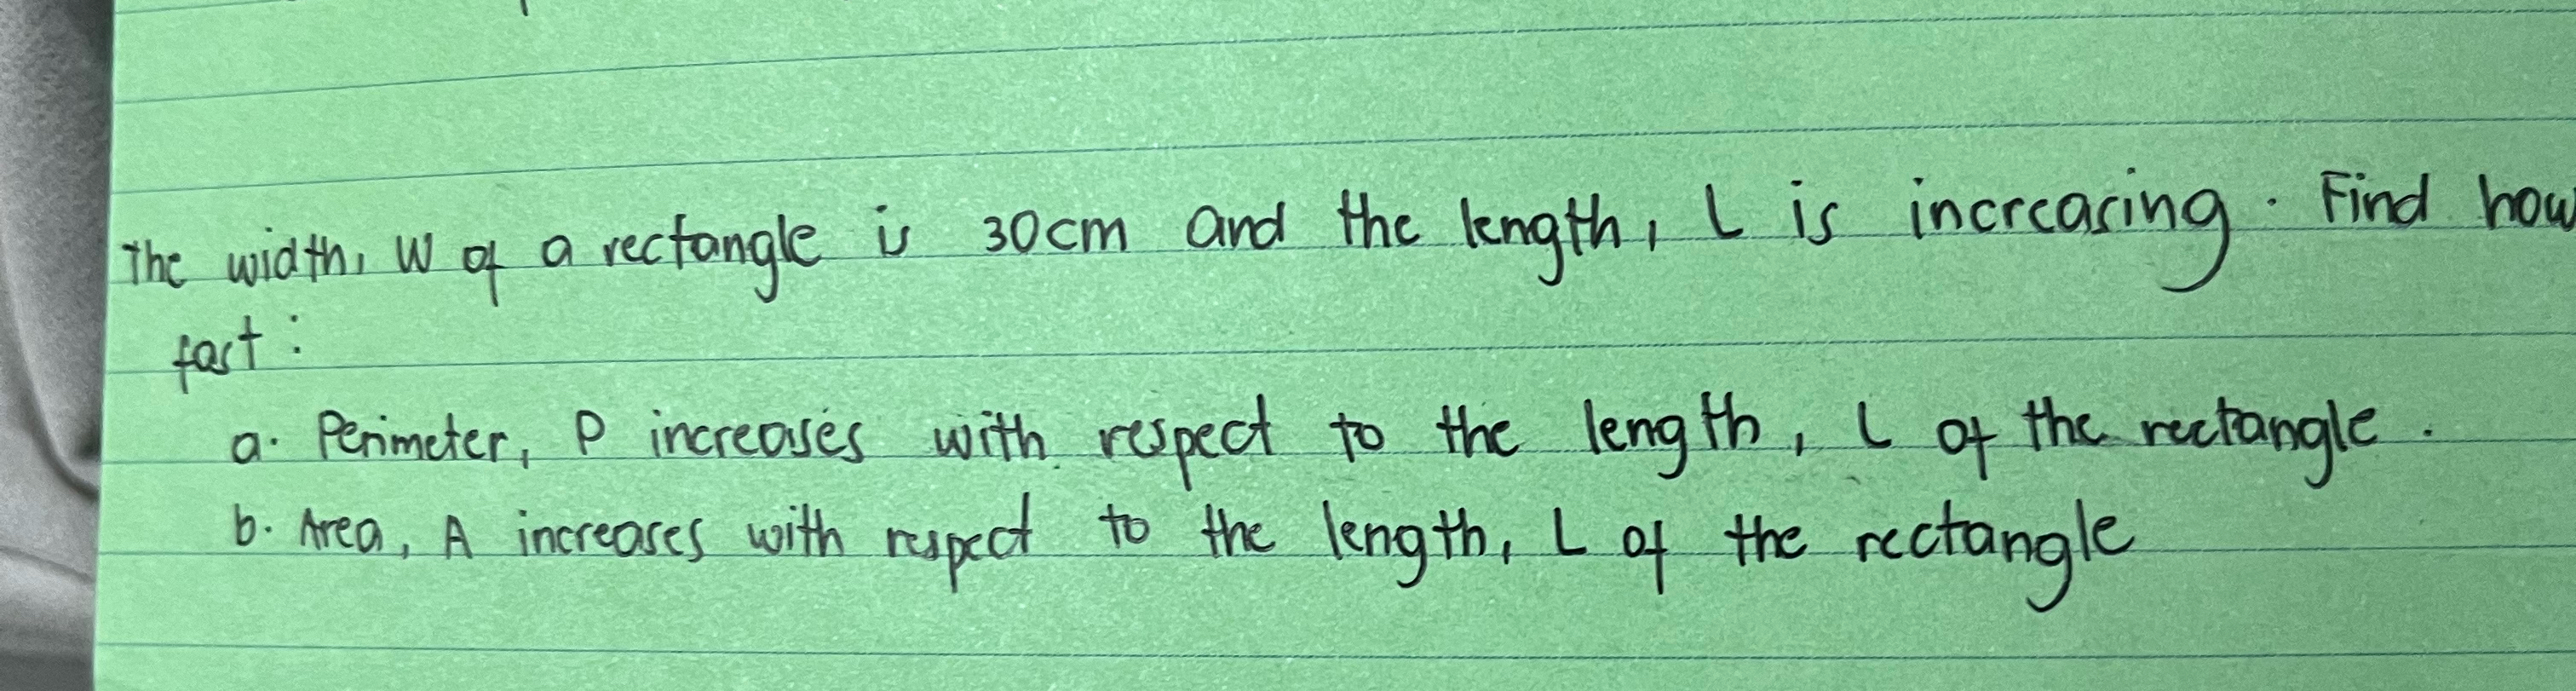 The width, W of a rectangle is 30cm and the length, L is increasing. Find how
fast:
a. Perimeter, P increases with respect to the length, L of the rectangle.
b. Area, A increases with respect to the length, L of the rectangle